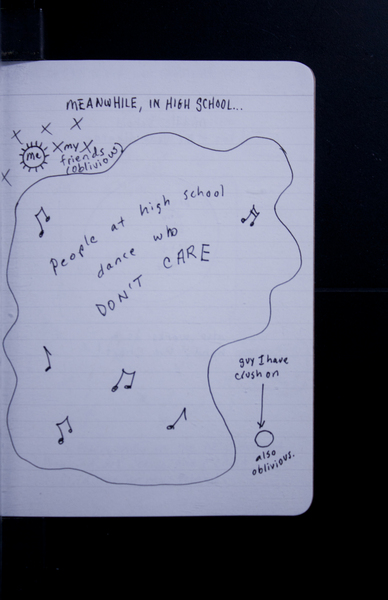 MEANWHILE, IN HIGH SCHOOL...
me
my
friends
(oblivious)
people at high school
dance who
DON'T CARE
guy I have
crush on
also
oblivious.